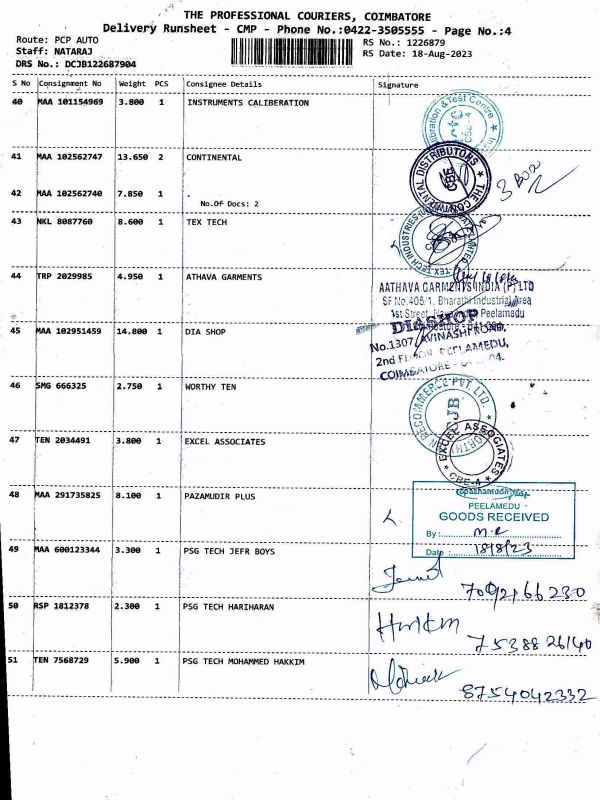 THE PROFESSIONAL COURIERS, COIMBATORE
Delivery Runsheet - CMP - Phone No.:0422-3505555 - Page No.:4
Route: PCP AUTO
Staff: NATARAJ
DRS No.: DCJB122687904
RS No.: 1226879
RS Date: 18-Aug-2023
S No Consignment No Weight PCS Consignee Details Signature
40 MAA 101154969 3.800 1 INSTRUMENTS CALIBERATION
41 MAA 102562747 13.650 2 CONTINENTAL
THE CONTINENTAL DISTRIBUTORS
CBE
3 Box
42 MAA 102562740 7.850 1 .
No.Of Docs: 2
43 NKL 8087760 8.600 1 TEX TECH
TEX TECH INDUSTRIES
44 TRP 2029985 4.950 1 ATHAVA GARMENTS
AATHAVA GARMENTS INDIA (P) LTD
SF No.405/1, Bharathi Industrial Area
1st Street, Peelamedu
45 MAA 102951459 14.800 1 DIA SHOP
DIA SHOP
No.1307, AVINASHI ROAD,
2nd FLOOR PEELAMEDU,
COIMBATORE
46 SMG 666325 2.750 1 WORTHY TEN
RECOMMERCE PVT. LTD.
CJB
47 TEN 2034491 3.800 1 EXCEL ASSOCIATES
EXCEL ASSOCIATES
CBE-4
48 MAA 291735825 8.100 1 PAZAMUDIR PLUS
PEELAMEDU
GOODS RECEIVED
By :
Date : 18/8/23
49 MAA 600123344 3.300 1 PSG TECH JEFR BOYS
7092166230
50 RSP 1812378 2.300 1 PSG TECH HARIHARAN
7538826140
51 TEN 7568729 5.900 1 PSG TECH MOHAMMED HAKKIM
8754042332